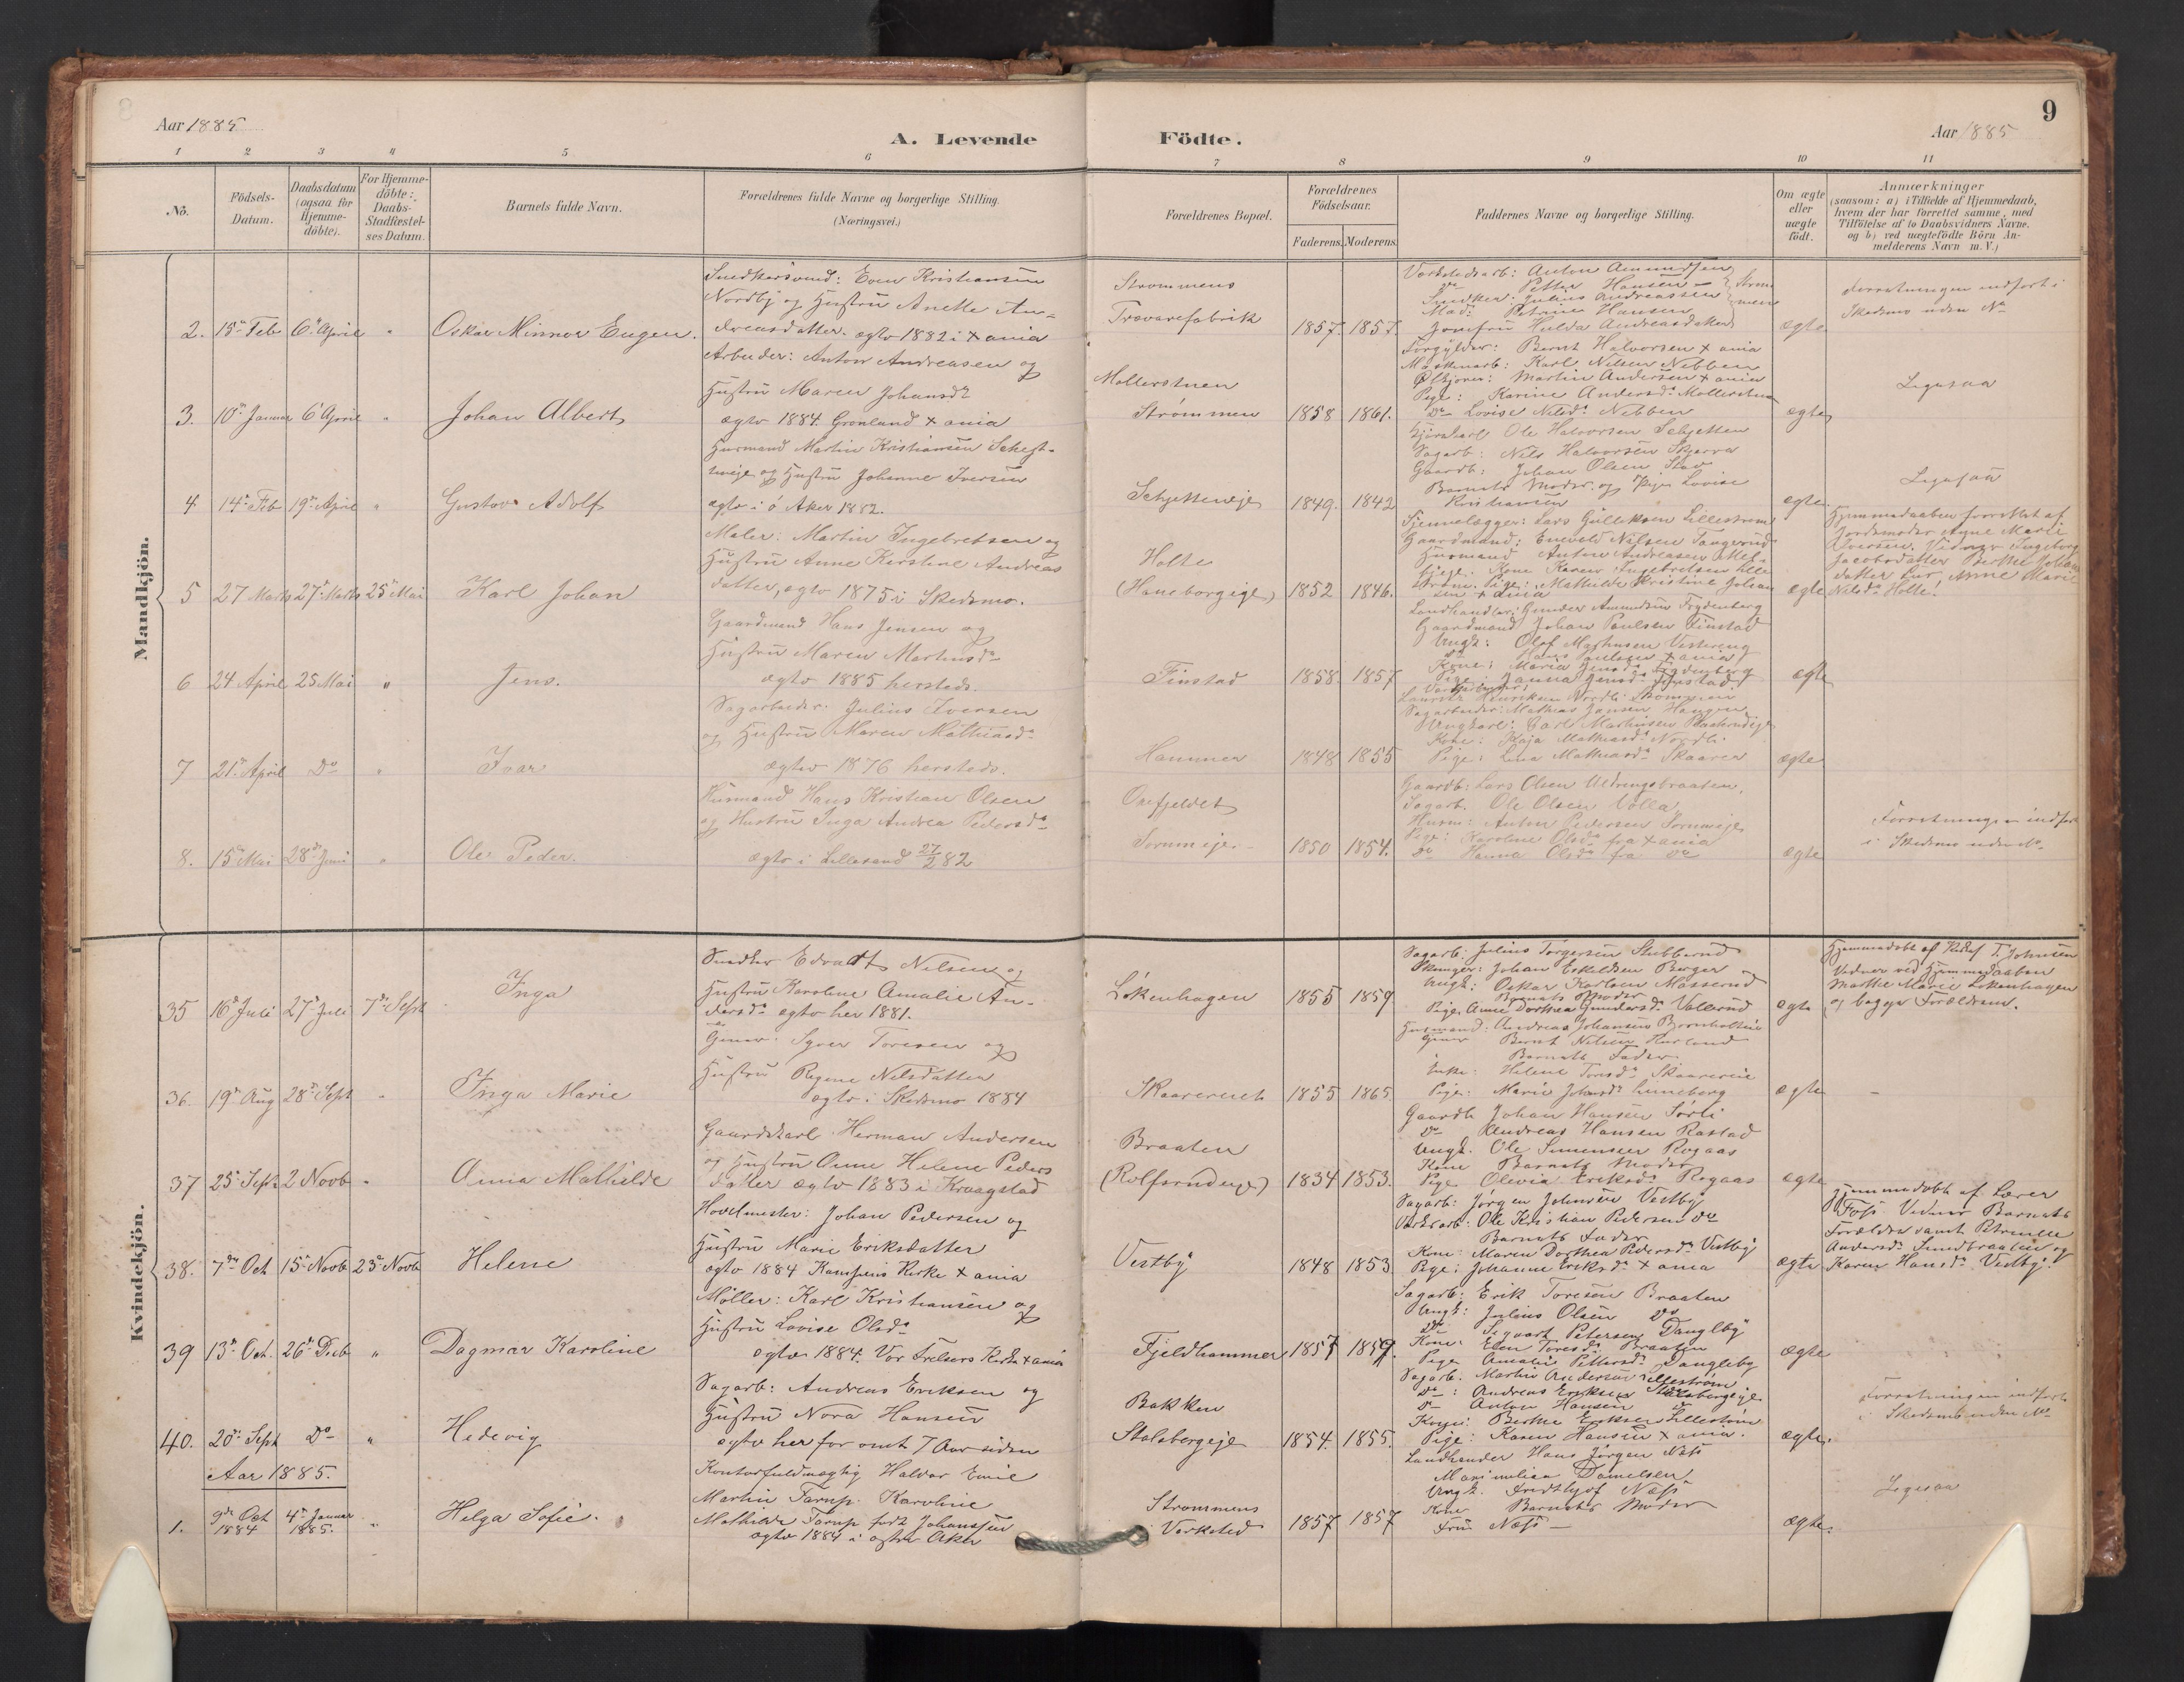 Aar 1885
A. Levende
Födte.
Aar 1885
9
1 2 3 4 5 6 7 8 9 10 11
No.
Födsels-Datum.
Daabsdatum (ogsaa for Hjemme-döbte).
For Hjemme-döbte: Daabs-Stadfæstel-ses Datum.
Barnets fulde Navn.
Forældrenes fulde Navne og borgerlige Stilling. (Næringsvei.)
Forældrenes Bopæl.
Forældrenes Födselsaar.
Faderens. Moderens.
Faddernes Navne og borgerlige Stilling.
Om ægte eller uægte födt.
Anmærkninger
(saasom: a) i Tilfælde af Hjemmedaab,
hvem der har forrettet samme, med
Tilföielse af to Daabsvidners Navne.
og b) ved uægtefödte Börn An-
melderens Navn m. V.)
Mandkjön.
2. 15de Feb 6te April " Oskar Minnor Eugen.
Even Kristiansen
Nordby og Hustru Anette An-
dreasdatter. ægtv 1882 i Xania
Strømmens
Trævarefabrik
1857. 1857.
Værkstedsarb: Anton Amundsen
Do Petter Hansen
Snedker Julius Andreassen
Mad: Petrine Hansen
Jomfru Hulda Andreasdatter
ægte
Forretningen indført i
Skedsmo uden No
3. 10de Januar 6te April " Johan Albert
Arbeider: Anton Andreasen og
Hustru Maren Johansdr
ægtv 1884 Grønland Xania
Møllerstuen
Strømmen
1858 1861.
Forgylder: Bernt Halvorsen Xania
Karl Nilsen Nebben
Martin Andersen Xania
Pige: Karine Andersdr Møllerstuen
Do Lovise Nilsdr Nebben
ægte
Ligesaa
4. 14de Feb 19de April " Gustav Adolf
Husmand Martin Kristiansen Schjet-
neije og Hustru Johanne Iversen
ægtv i Ø Aker 1882.
Schjetteneje
1849. 1842
Ole Halvorsen Schjetten
Sagarb: Nils Halvorsen Skjerva
Gaardb: Johan Olsen Stav
Barnets Moder og Pige Lovise
Kristiansen
ægte.
Ligesaa
5 27 Marts 27de Marts 25de Mai Karl Johan
Maler: Martin Ingebretsen og
Hustru Anne Kirstine Andreas
datter, ægtv 1875 i Skedsmo.
Holte
(Haneborgeje)
1852 1846.
Lars Gulliksen Lillestrøm
Gaardmand: Enevold Nilsen Tangerud
Husmand Anton Andreasen
Kone Karen Ingebretsen Lille
strøm. Pige: Mathilde Kristine Johan
sen Xania
ægte
Hjemmedaaben forrettet af
Jordemoder Agne Marie
Iversen. Vidner Ingeborg
Jacobsdatter Berthe Johan
datter Anne Marie
Nilsdr Holte.
6 24 April 25 Mai " Jens.
Gaardmand Hans Jensen og
Hustru Maren Martinsdr
ægtv 1885 hersteds.
Finstad
1858. 1857
Landhandler: Gunder Amundsen Frydenberg
Gaardmand Johan Paulsen Finstad
Ungk: Olaf Mathisen Vestereng
Do Hans Paulsen Xania
Kone: Maria Jensdr Frydenberg
Pige: Janna Jensdr Finstad
ægte
7 21de April Do " Ivar
Sagarbeider: Julius Iversen
og Hustru Maren Mathiasdr
ægtev 1876 hersteds.
Hammer
1848 1855
Lauritz Henriksen Nordli Strømmen
Sagarbeider: Mathias Jansen Haugen
Ungkarl: Carl Martinsen
Kone: Kaja Mathiasdr Nordli
Pige: Lina Mathiasdr Skaarer
ægte
8. 15de Mai 28de Juni " Ole Peder.
Husmand Hans Kristian Olsen
og Hustru Inga Andrea Pedersdr
ægtv i Lillesand 27/2 82
1850 1854.
Gaardb: Lars Olsen
Sagarb. Ole Olsen Volla
Husm: Anton Pedersen
Pige: Karoline Olsdr fra Xania
Do Hanna Olsdr fra Do
ægte
Forretningen indført
i Skedsmo uden No.
Kvindekjön.
35 16de Juli 27de Juli 7de Sept Inga
Snedker Edvardt Nilsen og
Hustru Karoline Amalie An-
dersdr ægtv her 1881.
Løkenhagen
1855 1859
Sagarb: Julius Torgersen Stubberud
Johan Eskeldsen Berger
Ungk: Oskar Karlsen Masserud
Barnets Moder
Pige Anne Dorthea Gundersdr Vallerud
ægte
Hjemmedøbt af T. Johnsen
Vidner ved Hjemmedaaben
Marthe Marie Løkenhagen
og begge Forældrene.
36. 19de Aug 28de Sept " Inga Marie
Syver Toresen og
Hustru Regine Nilsdatter
ægtv i Skedsmo 1884
Skaarereiet
1855 1865.
Husmand: Andreas Johansen Bjørnholteie
Bernt Nilsen
Barnets Fader
Enke: Helene Toresdr Skaarereie
Pige: Marie Johnsdr Linneberg
ægte –
37 25de Sept 2 Novb " Anna Mathilde
Gaardskarl Herman Andersen
og Hustru Anne Helene Peders
datter ægtv 1883 i Kraagstad
Braaten
(Rolfsrudeje)
1834 1853.
Gaardb Johan Hansen Sørli
Do Andreas Hansen Rastad
Ungk. Ole Simensen Rogaas
Kone Barnets Moder
Pige Olivia Eriksdr Rogaas
ægte
38. 7de Oct 15de Novb 23de Novb Helene
Hovelmester: Johan Pedersen og
Hustru Marie Eriksdatter
ægtv 1884 Kampens Kirke Xania
Vestby
1848 1853
Sagarb: Jørgen Johnsen Vestby
Værksarb: Ole Kristian Pedersen Do
Barnets Fader
Kone: Maren Dorthea Pedersdr Vestby
Pige: Johanne Eriksdr Xania
ægte
Hjemmedøbt af Lærer
Foss Vidner Barnets
Forældre samt Petrine
Andersdr og
Karen Hansdr Vestby.
39 13de Oct. 26de Decb " Dagmar Karoline
Møller: Karl Kristiansen og
Hustru Lovise Olsdr
ægtv 1884. Vor Frelsers Kirke Xania
Fjeldhammer
1857 1859.
Sagarb: Erik Toresen Braaten
Ungk: Julius Olsen Do
Do Sigvart Petersen Danglby
Kone: Elen Toresdr Braaten
Pige Amalie Pettersdr Dangleby
ægte
40. 20de Sept Do " Hedevig
Sagarb: Andreas Eriksen og
Hustru Nora Hansen
ægtv her for omt 7 Aar siden
Bakken
Stalsbergeje
1854. 1855.
Sagarb. Martin Andersen Lillestrøm
Do : Andreas Eriksen Stalsbergeje
Do Anton Hansen Do
Kone: Berthe Eriksen Lillestrøm
Pige: Karen Hansen Xania.
ægte.
Forretningen indført
i Skedsmo uden No
Aar 1885.
1. 9de Oct 1884 4de Januar 1885. " Helga Sofie.
Kontorfuldmægtig Halvor Emil
Martin Tarup. Karoline
Mathilde Tarup født Johanssen
ægtv 1884 i østre Aker
Strømmens
Værksted
1857 1857
Landhandler Hans Jørgen Næss
Maximilian Danielsen
Ungk. Fredthjof Næss
Kone Barnets Moder
Fru Næss –
ægte.
Ligesaa